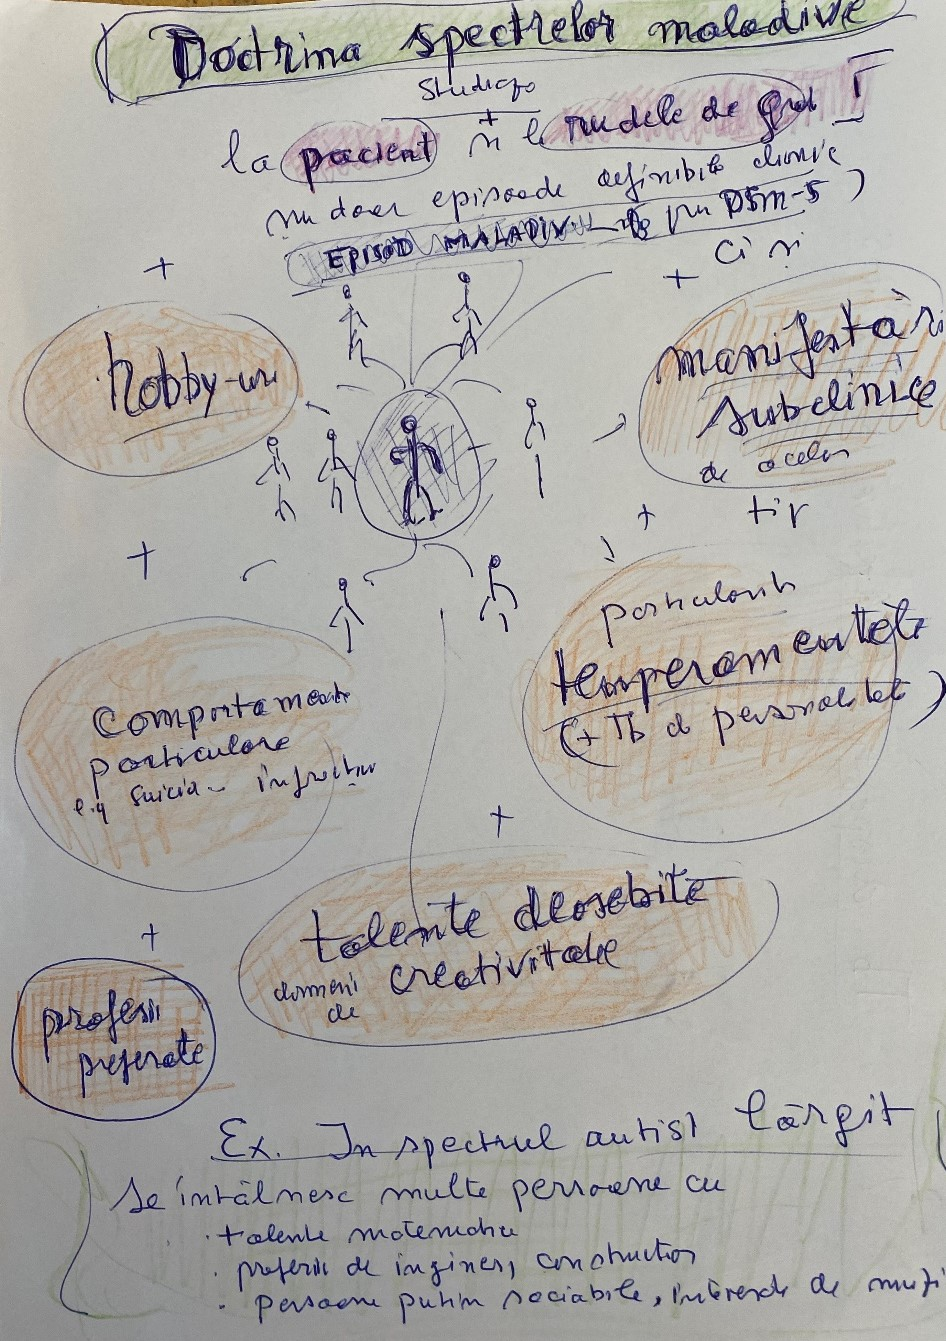 Doctrina spectrelor maladive
Studiază
la pacient și rudele de grd I
nu doar episoade definibile clinic
EPISOD MALADIV (cu DSM-5)
ci și
+
+
hobby-uri
manifestări
subclinice
de același
tip
+
+
particularit
temperamentele
(+ Tb d personalitate)
Comportamente
particulare
e.g suicid - infracțiuni
+
talente deosebite
domenii creativitate
de
+
profesii
preferate
Ex. In spectrul autist lărgit
Se întâlnesc multe persoane cu
· talente matematice
· profesii de ingineri, constructori
· persoane puțin sociabile, interesate de